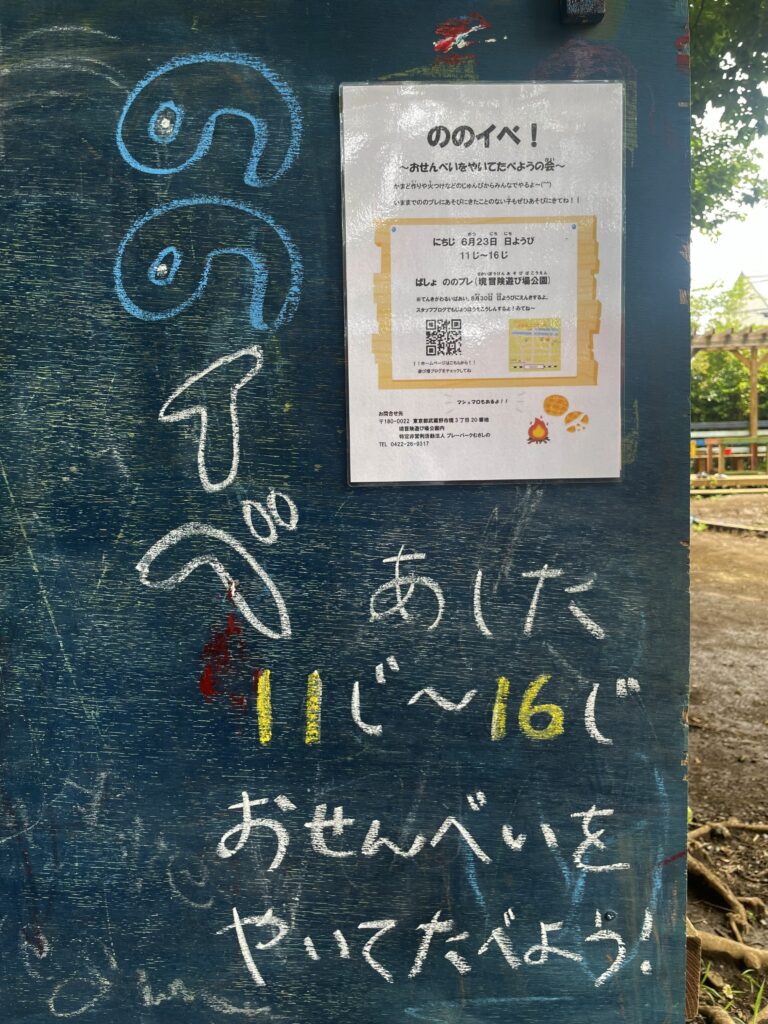 ののイベ
ののイベ！
～おせんべいをやいてたべようの会～
かまど作りや火つけなどのじゅんびからみんなでやるよ～(^^)
いままでののプレにあそびにきたことのない子もぜひあそびにきてね！！
にちじ 6月23日 日ようび
11じ～16じ
ばしょ ののプレ(境冒険遊び場公園)
※てんきがわるいばあい、6月30日 日ようびにえんきするよ。
スタッフブログでもじょうほうをこうしんするよ！みてね～
↑↑ホームページはこちらから！！
遊び場ブログをチェックしてね
マシュマロもあるよ！！
お問合せ先
〒180-0022 東京都武蔵野市境3丁目20番地
境冒険遊び場公園内
特定非営利活動法人 プレーパークむさしの
TEL 0422-26-9317
あした
11じ～16じ
おせんべいを
やいてたべよう!